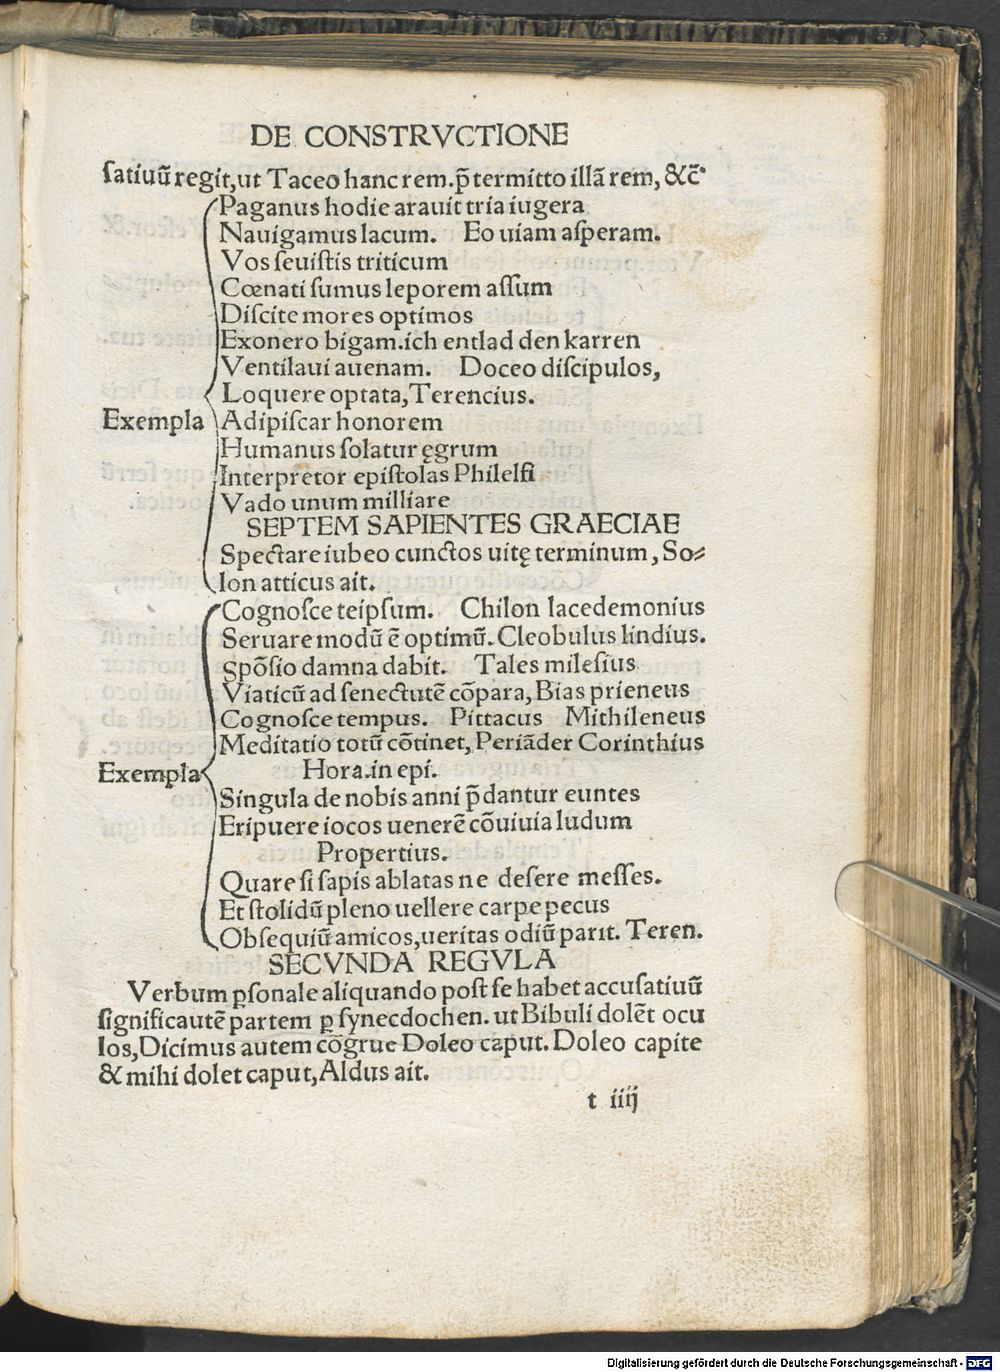 DE CONSTRVCTIONE
ſatiuū regit,ut Taceo hanc rem.p̄termitto illā rem, &c̄.
Paganus hodie arauit tria iugera
Nauigamus lacum. Eo uiam aſperam.
Vos ſeuiſtis triticum
Cœnati ſumus leporem aſſum
Diſcite mores optimos
Exonero bigam.ich entlad den karren
Ventilaui auenam. Doceo diſcipulos,
Loquere optata,Terencius.
Exempla Adipiſcar honorem
Humanus ſolatur ęgrum
Interpretor epiſtolas Philelfi
Vado unum milliare
SEPTEM SAPIENTES GRAECIAE
Spectare iubeo cunctos uitę terminum, So⸗
lon atticus ait.
Cognoſce teipſum. Chilon lacedemonius
Seruare modū ē optimū. Cleobulus lindius.
Spōſio damna dabit. Tales mileſius
Viaticū ad ſenectutē cōpara, Bias prieneus
Cognoſce tempus. Pittacus Mithileneus
Meditatio totū cōtinet, Periāder Corinthius
Exempla Hora.in epi.
Singula de nobis anni p̄dantur euntes
Eripuere iocos uenerē cōuiuia ludum
Propertius.
Quare ſi ſapis ablatas ne deſere meſſes.
Et ſtolidū pleno uellere carpe pecus
Obſequiū amicos,ueritas odiū parit. Teren.
SECVNDA REGVLA
Verbum ꝑſonale aliquando poſt ſe habet accuſatiuū
ſignificautē partem ꝑ ſynecdochen. ut Bibuli dolēt ocu
los,Dicimus autem cōgrue Doleo caput. Doleo capite
& mihi dolet caput,Aldus ait.
t iiij
Digitalisierung gefördert durch die Deutsche Forschungsgemeinschaft - DFG